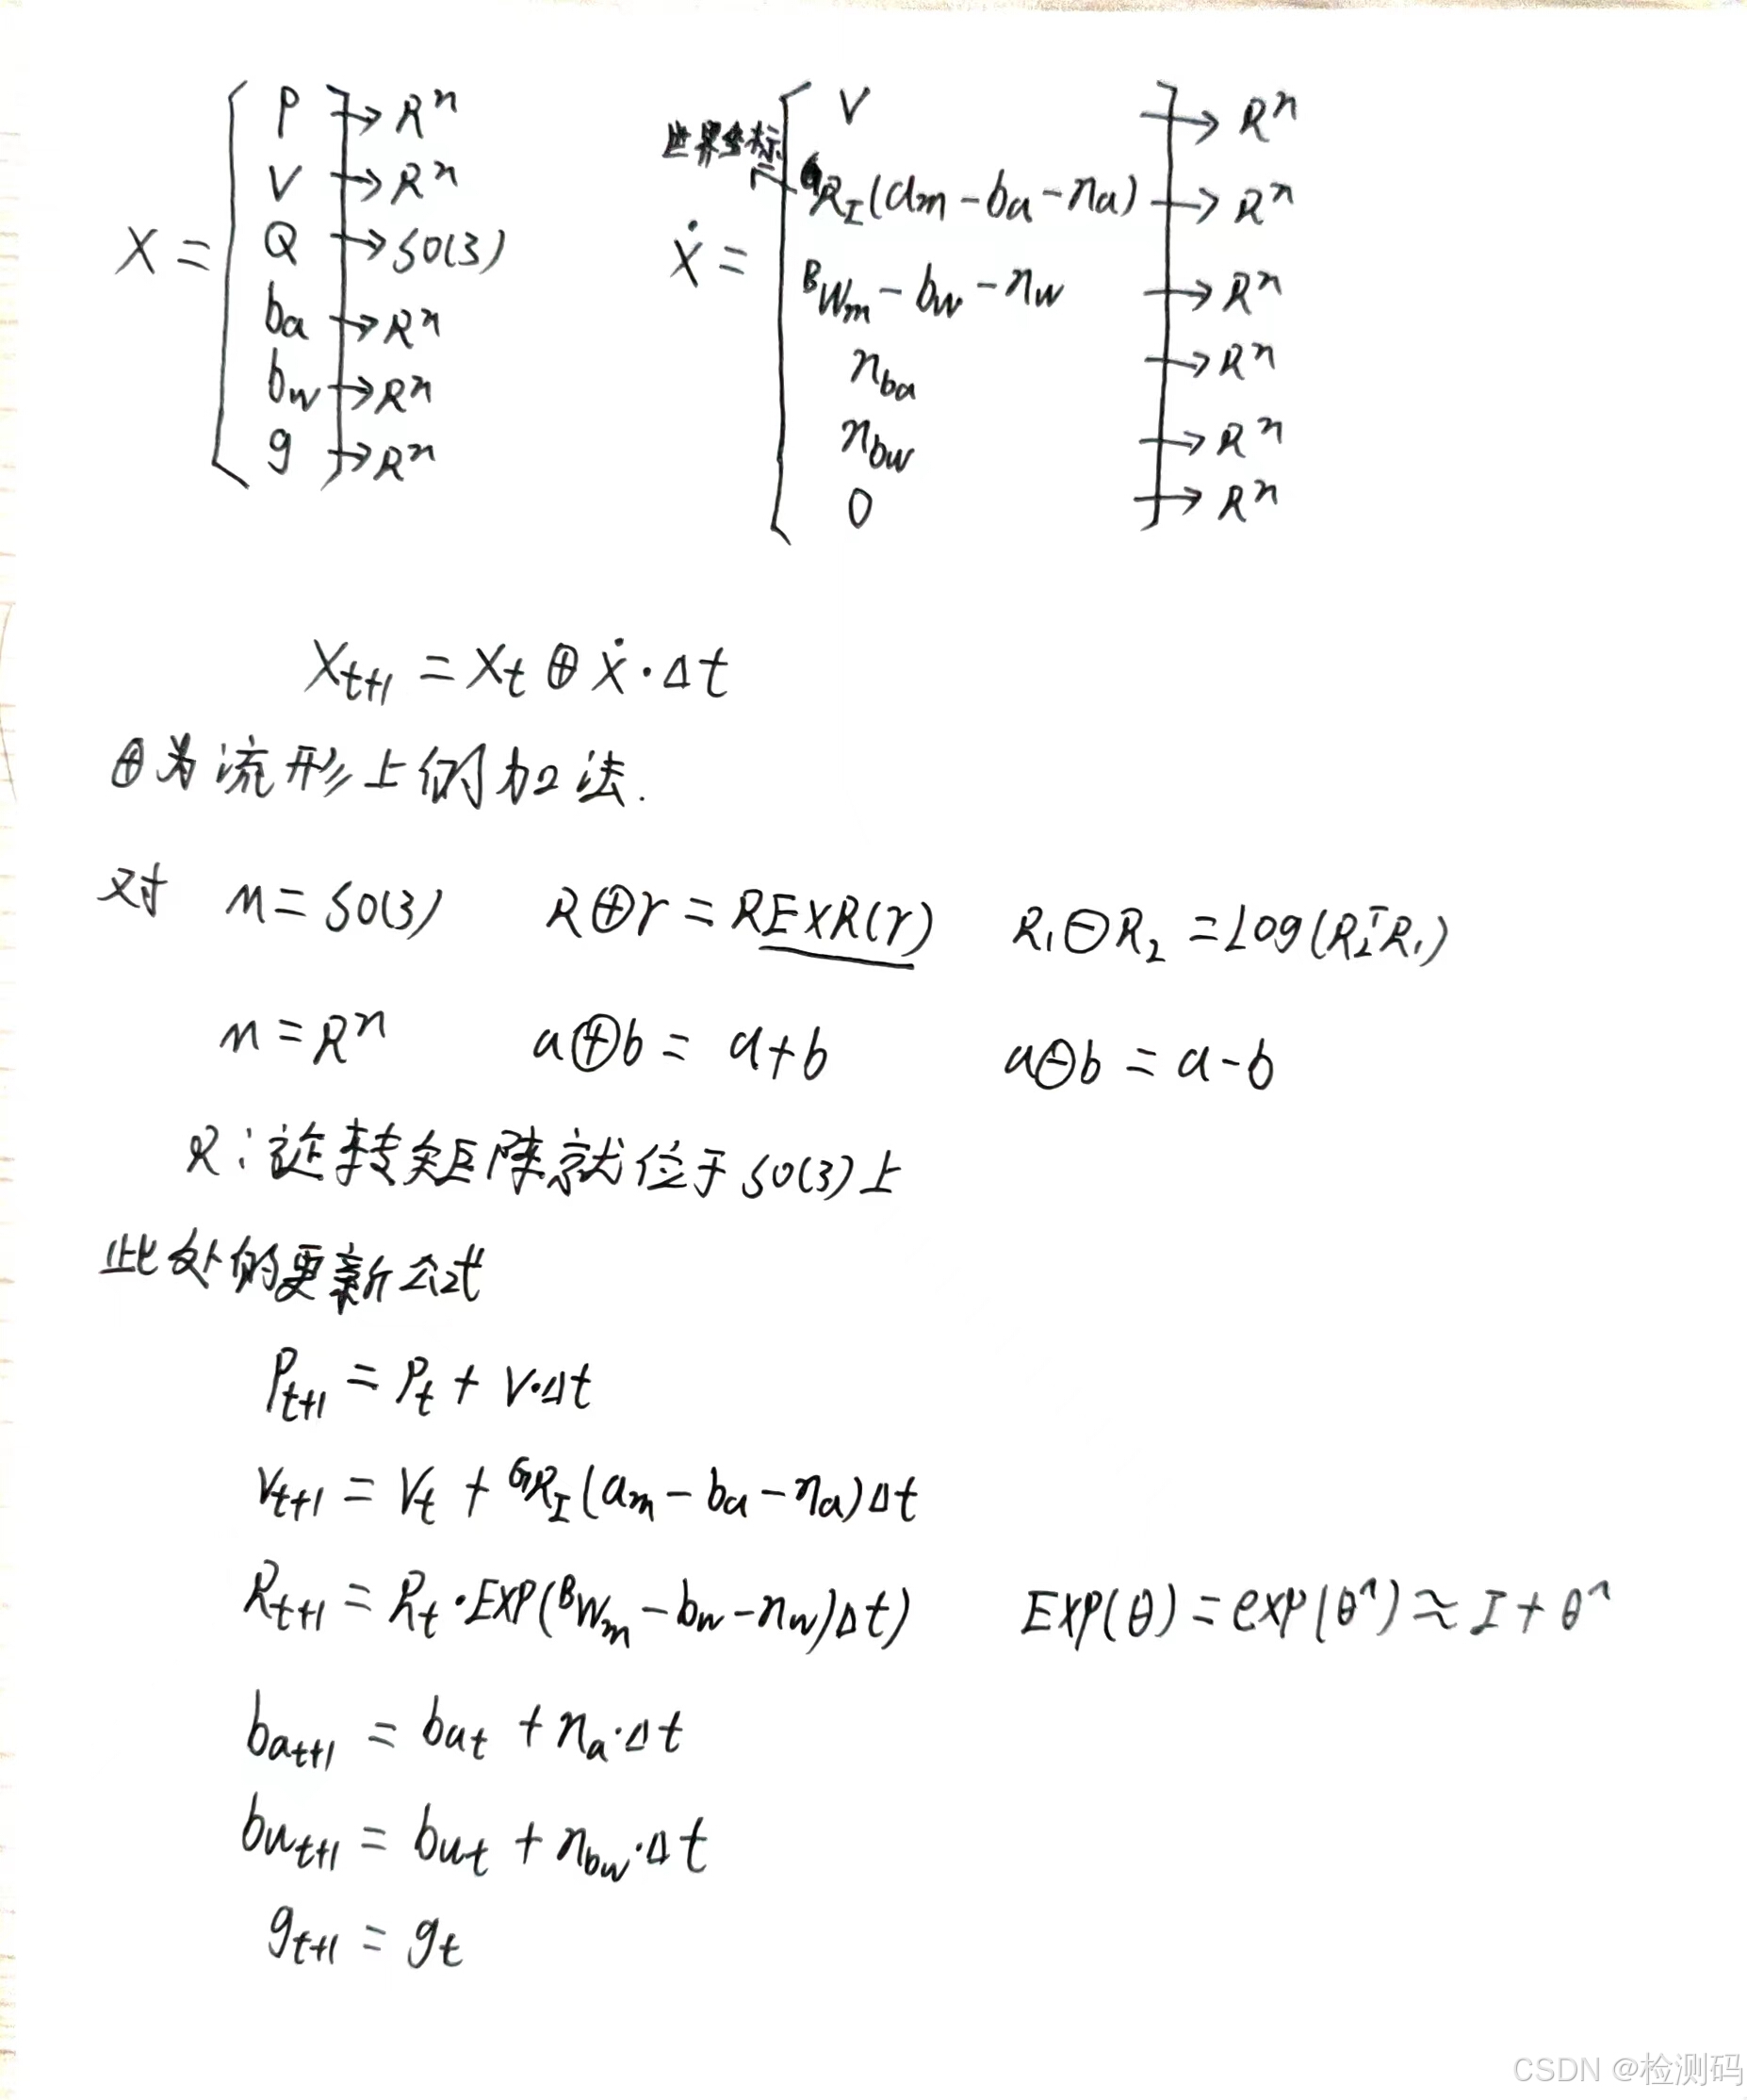 X = [ P → R^n
V → R^n
Q → SO(3)
b_a → R^n
b_w → R^n
g → R^n ]
世界坐标
Ẋ = [ V → R^n
^G R_I (a_m - b_a - n_a) → R^n
^B W_m - b_w - n_w → R^n
n_ba → R^n
n_bw → R^n
0 → R^n ]
X_{t+1} = X_t ⊕ Ẋ · Δt
⊕为流形上的加法.
对 M = SO(3) R⊕r = R EXR(r) R_1 ⊖ R_2 = Log(R_2^T R_1)
M = R^n a⊕b = a+b a⊖b = a-b
R：旋转矩阵就位于SO(3)上
此处的更新公式
P_{t+1} = P_t + V·Δt
V_{t+1} = V_t + ^G R_I (a_m - b_a - n_a) Δt
R_{t+1} = R_t · EXP(^B W_m - b_w - n_w) Δt) EXP(θ) = exp(θ^) ≈ I + θ^
b_{a t+1} = b_{a t} + n_a · Δt
b_{w t+1} = b_{w t} + n_bw · Δt
g_{t+1} = g_t
CSDN @检测码